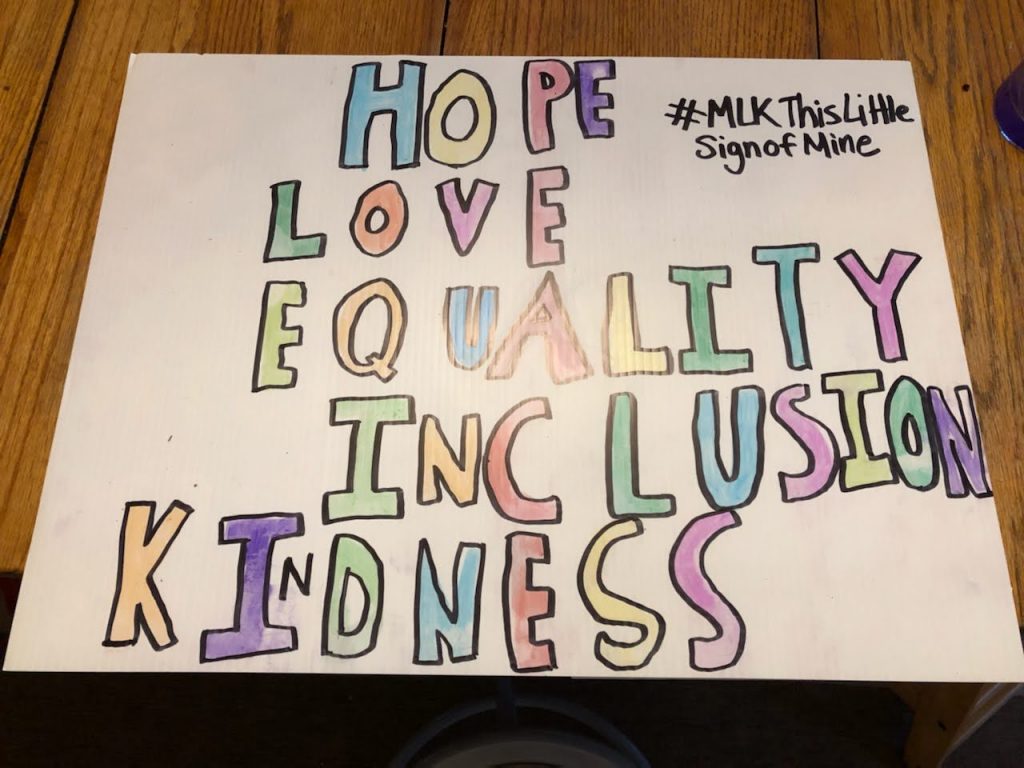 HOPE
#MLKThisLittle
SignofMine
LOVE
EQUALITY
INCLUSION
KINDNESS